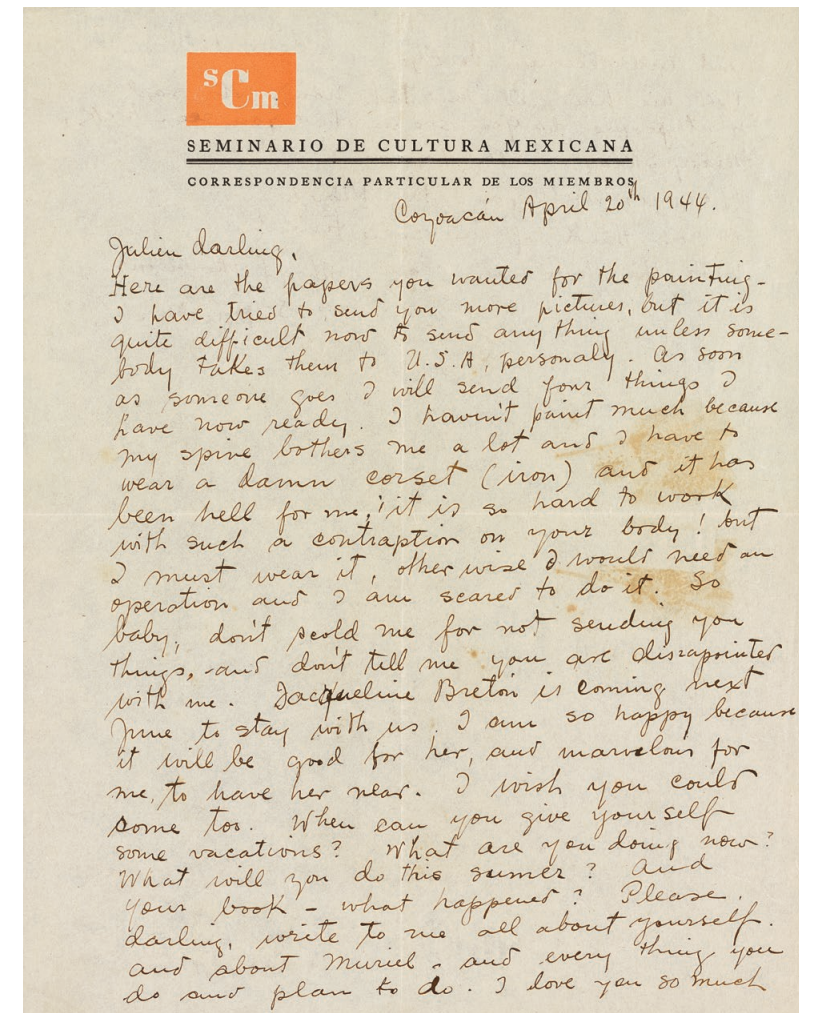 sCm
SEMINARIO DE CULTURA MEXICANA
CORRESPONDENCIA PARTICULAR DE LOS MIEMBROS
Coyoacán April 20th 1944.
Julien darling,
Here are the papers you wanted for the painting-
I have tried to send you more pictures, but it is
quite difficult now to send any thing unless some-
body takes them to U.S.A, personaly. As soon
as someone goes I will send four things I
have now ready. I haven't paint much because
my spine bothers me a lot and I have to
wear a damn corset (iron) and it has
been hell for me, it is so hard to work
with such a contraption on your body! but
I must wear it, other wise I would need an
operation and I am scared to do it. So
baby, don't scold me for not sending you
things, and don't tell me you are dissapointed
with me. Jacqueline Breton is coming next
June to stay with us. I am so happy because
it will be good for her, and marvelous for
me, to have her near. I wish you could
come too. When can you give yourself
some vacations? What are you doing now?
What will you do this sumer? And
your book - what happened? Please,
darling, write to me all about yourself.
and about Muriel - and every thing you
do and plan to do. I love you so much